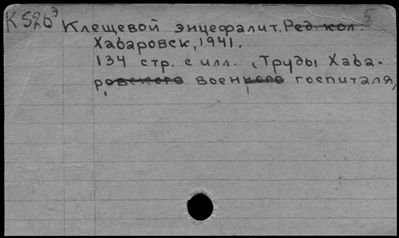 К520э Клещевой энцефалит. Ред. кол. 5
Хабаровск, 1941.
134 стр. с илл. (Труды Хаба-
ровского военного госпиталя,